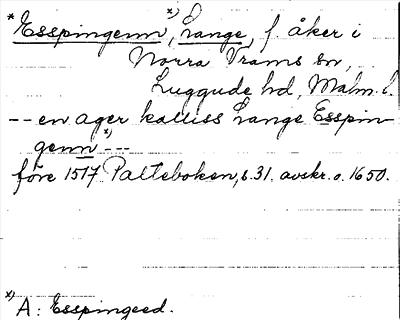 * Esspingenn x), Lange, f. åker i
Norra Vrams sn,
Luggude hd, Malm. l.
-- en ager kalliss Lange Esspin-
genn x) ---
före 1517 Palteboken, s. 31. avskr. o. 1650.
x) A: Esspingeed.